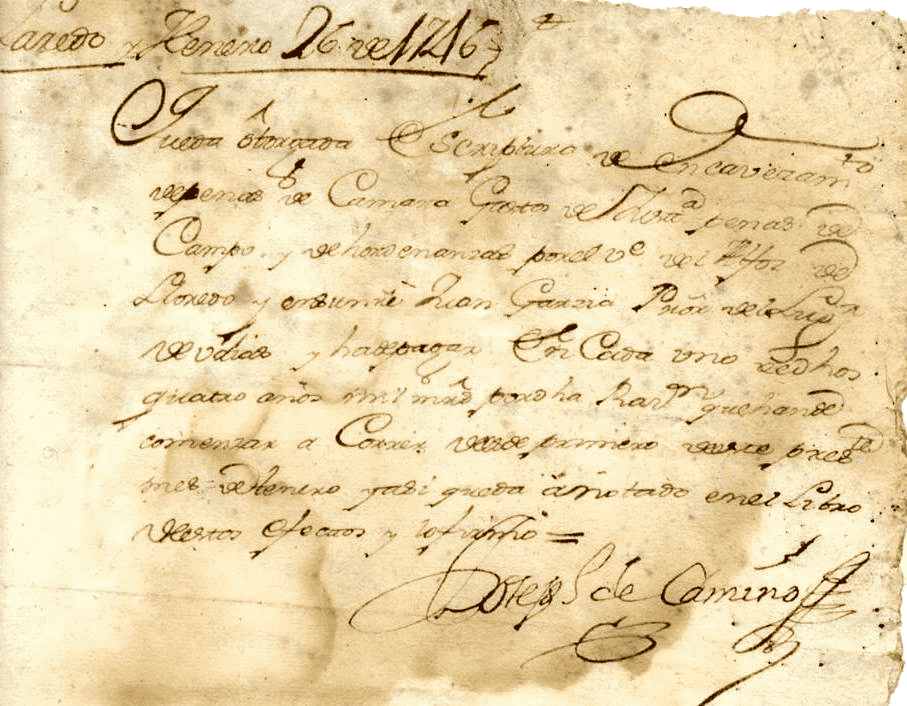 Laredo y Henero 26 de 1746
Queda ôtorgada Escriptura de encavezamto
depenas de Camara Gastos de Justa penas de
Campo y de hordenanzas por el vº del Alfoz de
Lloredo y ensunre Juan Garzia Prior del Lugr
de Udias y hadepagar En Cada uno dedhos
quatro años mil mrs pordha Razon quehande
comenzar a Correr desde primero deeste preste
mes de henero yasi queda anotado enel Libro
deestos efectos y lofirmo =
Joseph de Camino